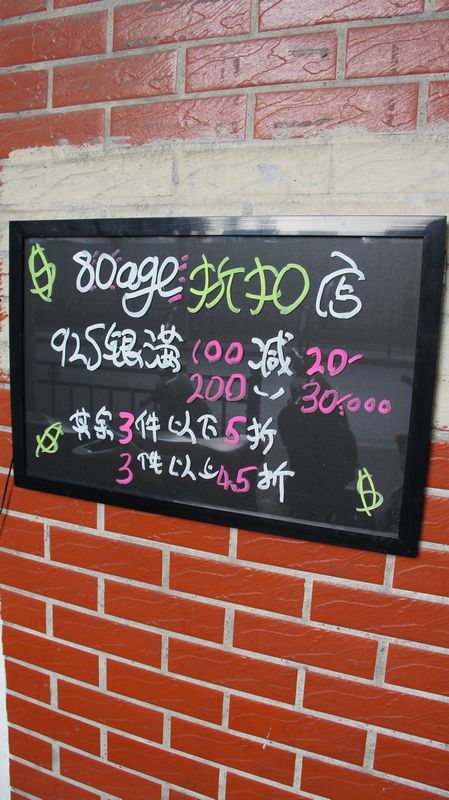 $ 80age 折扣店
925银满100减20-
200〃30.000
$ 其余3件以下5折
3件以上4.5折 $